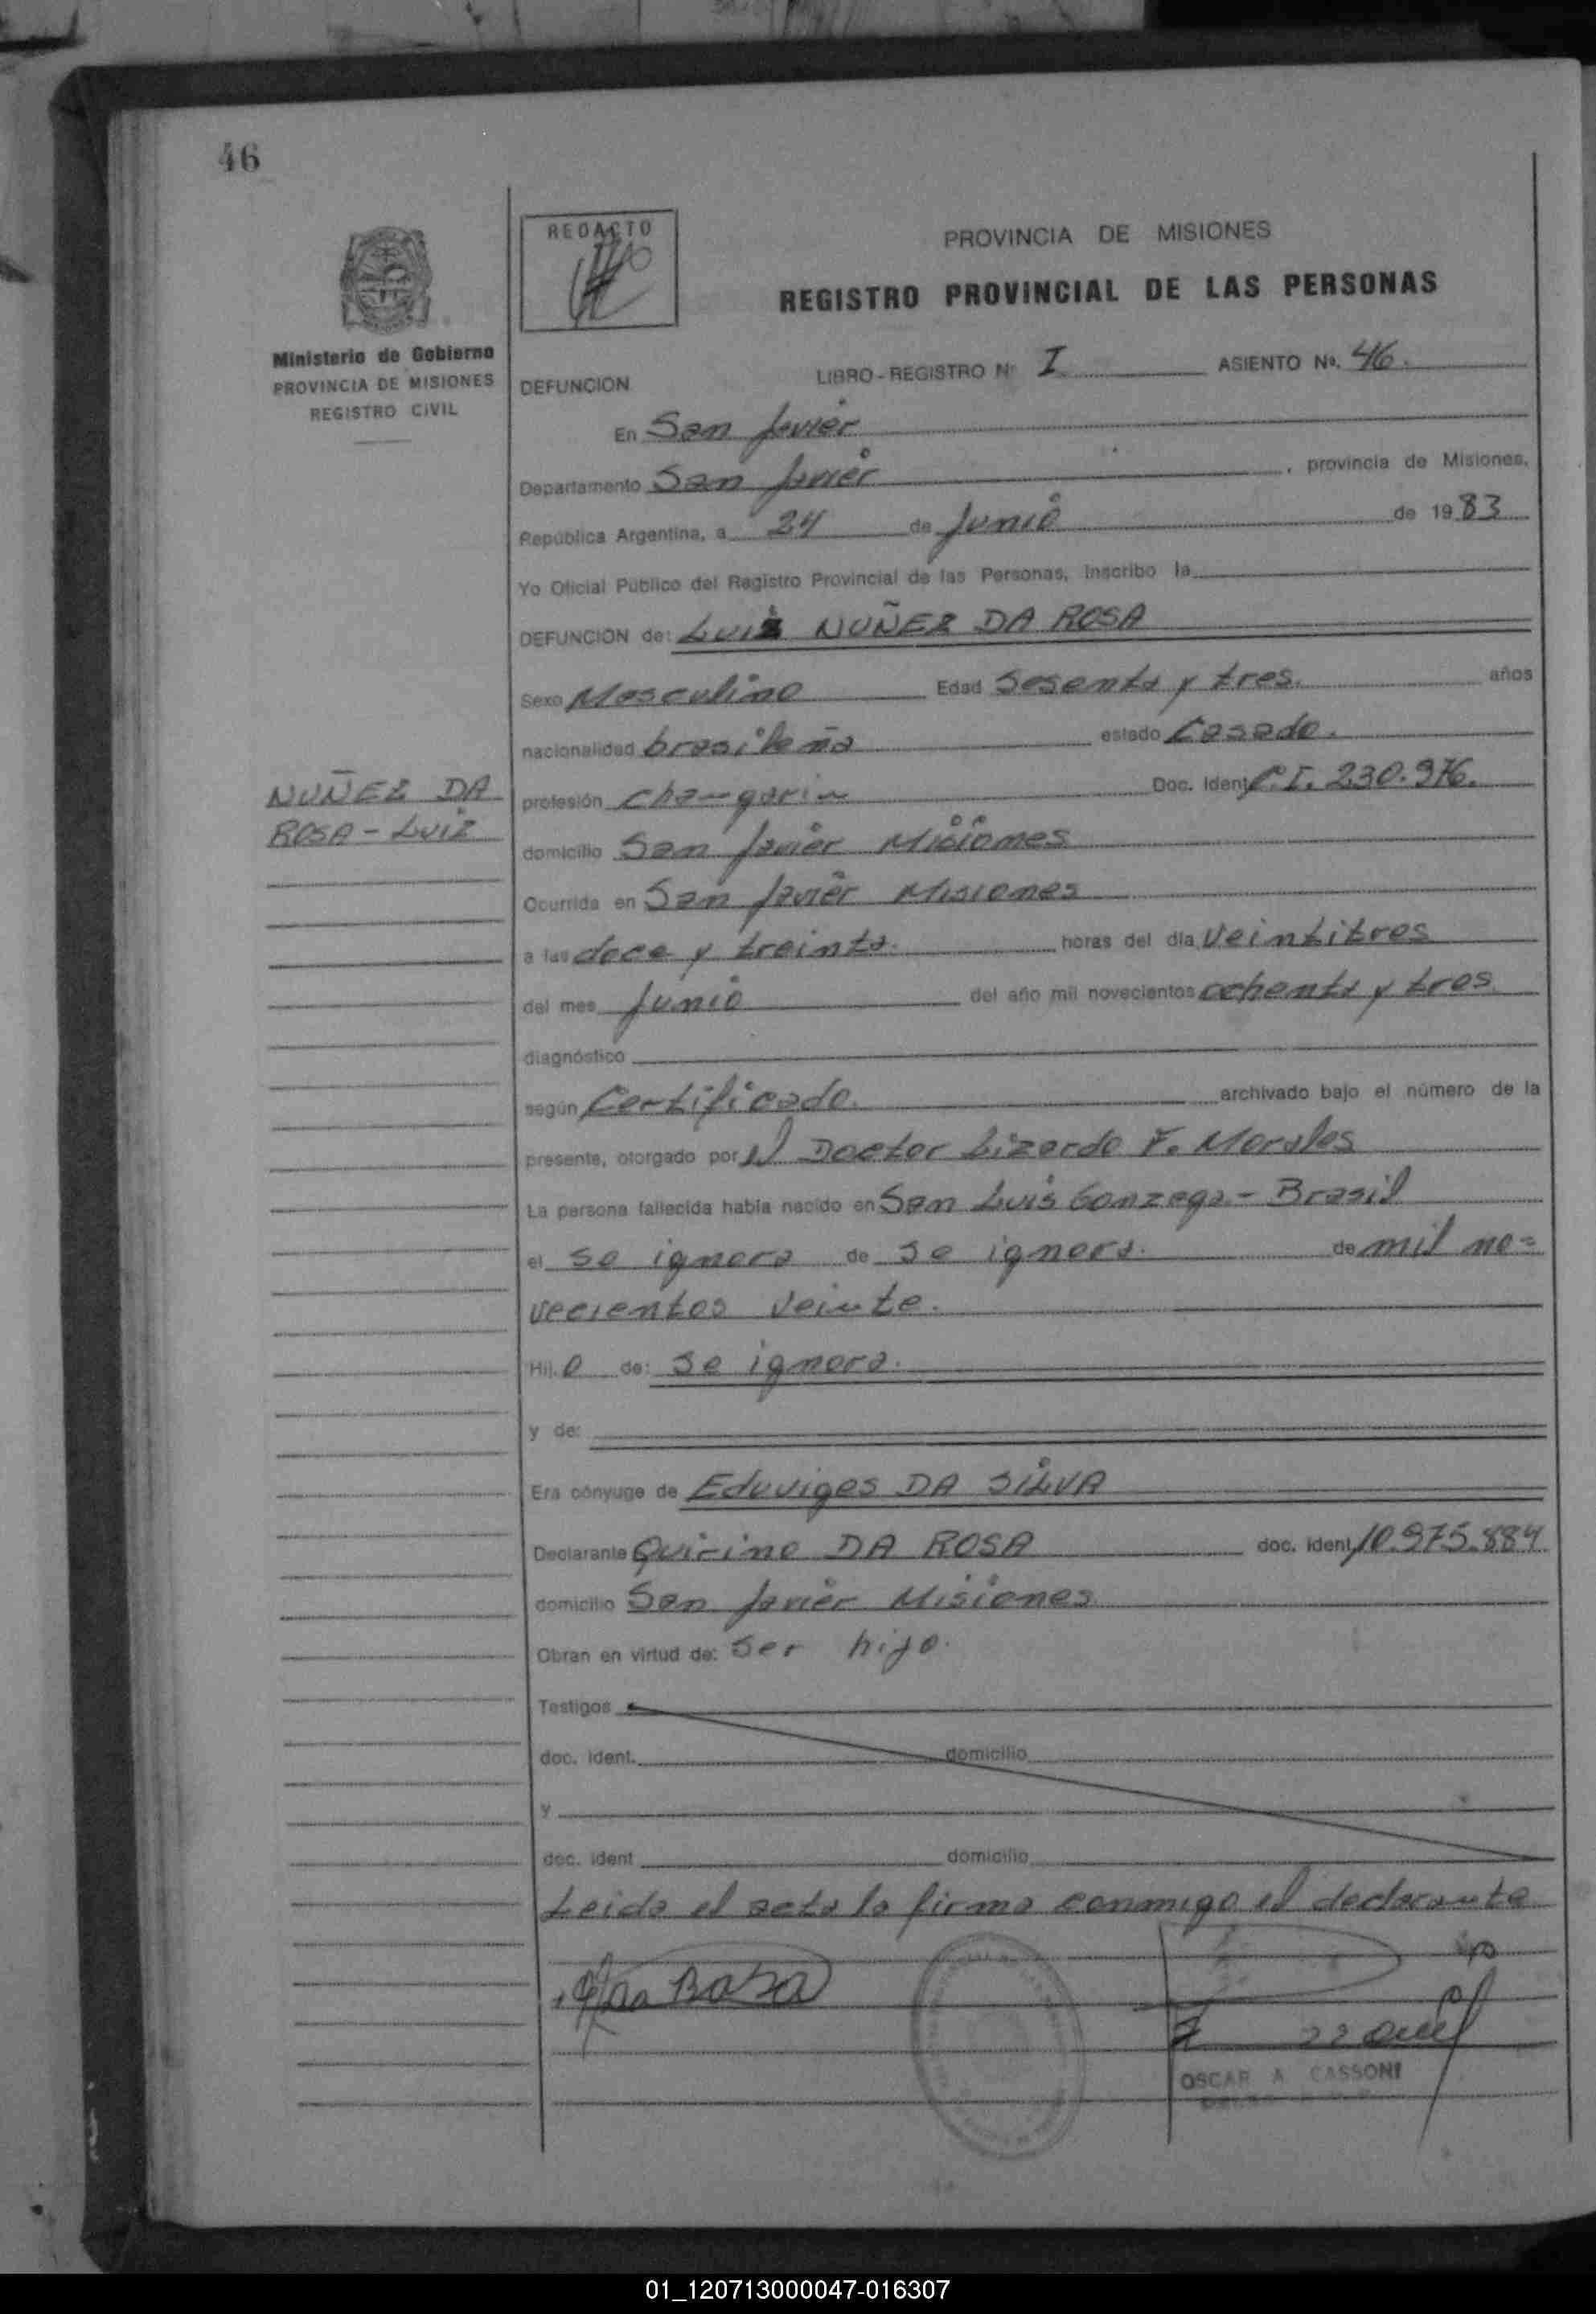 46
REDACTO
PROVINCIA DE MISIONES
REGISTRO PROVINCIAL DE LAS PERSONAS
Ministerio de Gobierno
PROVINCIA DE MISIONES
REGISTRO CIVIL
DEFUNCION LIBRO-REGISTRO Nº I ASIENTO Nº. 46.
En San Javier
Departamento San Javier, provincia de Misiones,
República Argentina, a 24 de Junio de 1983
Yo Oficial Público del Registro Provincial de las Personas, inscribo la
DEFUNCION de: Luiz NUÑEZ DA ROSA
Sexo Masculino Edad Sesenta y tres. años
nacionalidad brasileña estado Casado.
NUÑEZ DA
ROSA - LUIZ
profesión changarin Doc. Ident. C.I. 230.976.
domicilio San Javier Misiones
Ocurrida en San Javier Misiones
a las doce y treinta. horas del día Veintitres
del mes Junio del año mil novecientos ochenta y tres
diagnóstico
según Certificado. archivado bajo el número de la
presente, otorgado por el Doctor Lizardo F. Morales
La persona fallecida había nacido en San Luis Gonzaga - Brasil
el se ignora de se ignora. de mil no=
vecientos veinte.
Hij.o de: se ignora.
y de:
Era cónyuge de Eduviges DA SILVA
Declarante Quirino DA ROSA doc. ident. 10.975.884
domicilio San Javier Misiones
Obran en virtud de: Ser hijo.
Testigos
doc. ident. domicilio
y
doc. ident domicilio
Leida el acta la firma conmigo el declarante
OSCAR A CASSONI
01_120713000047-016307